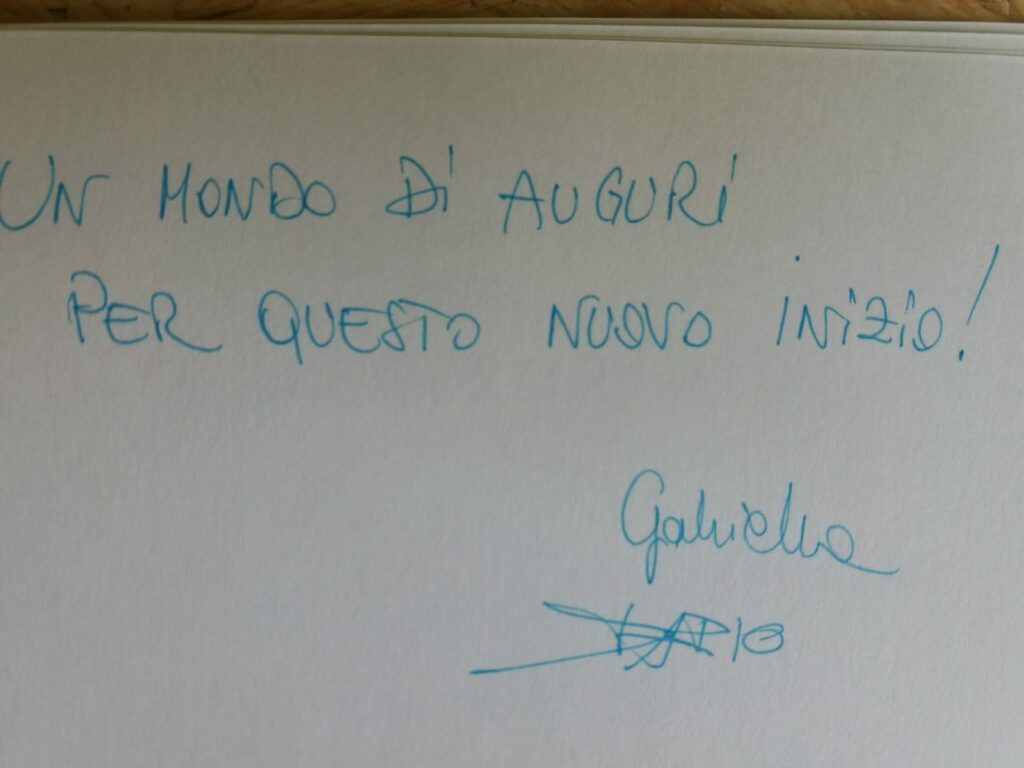 UN MONDO Di AUGURi
PER QUESTO NUOVO iNiZiO!
Gabriella
DARIO